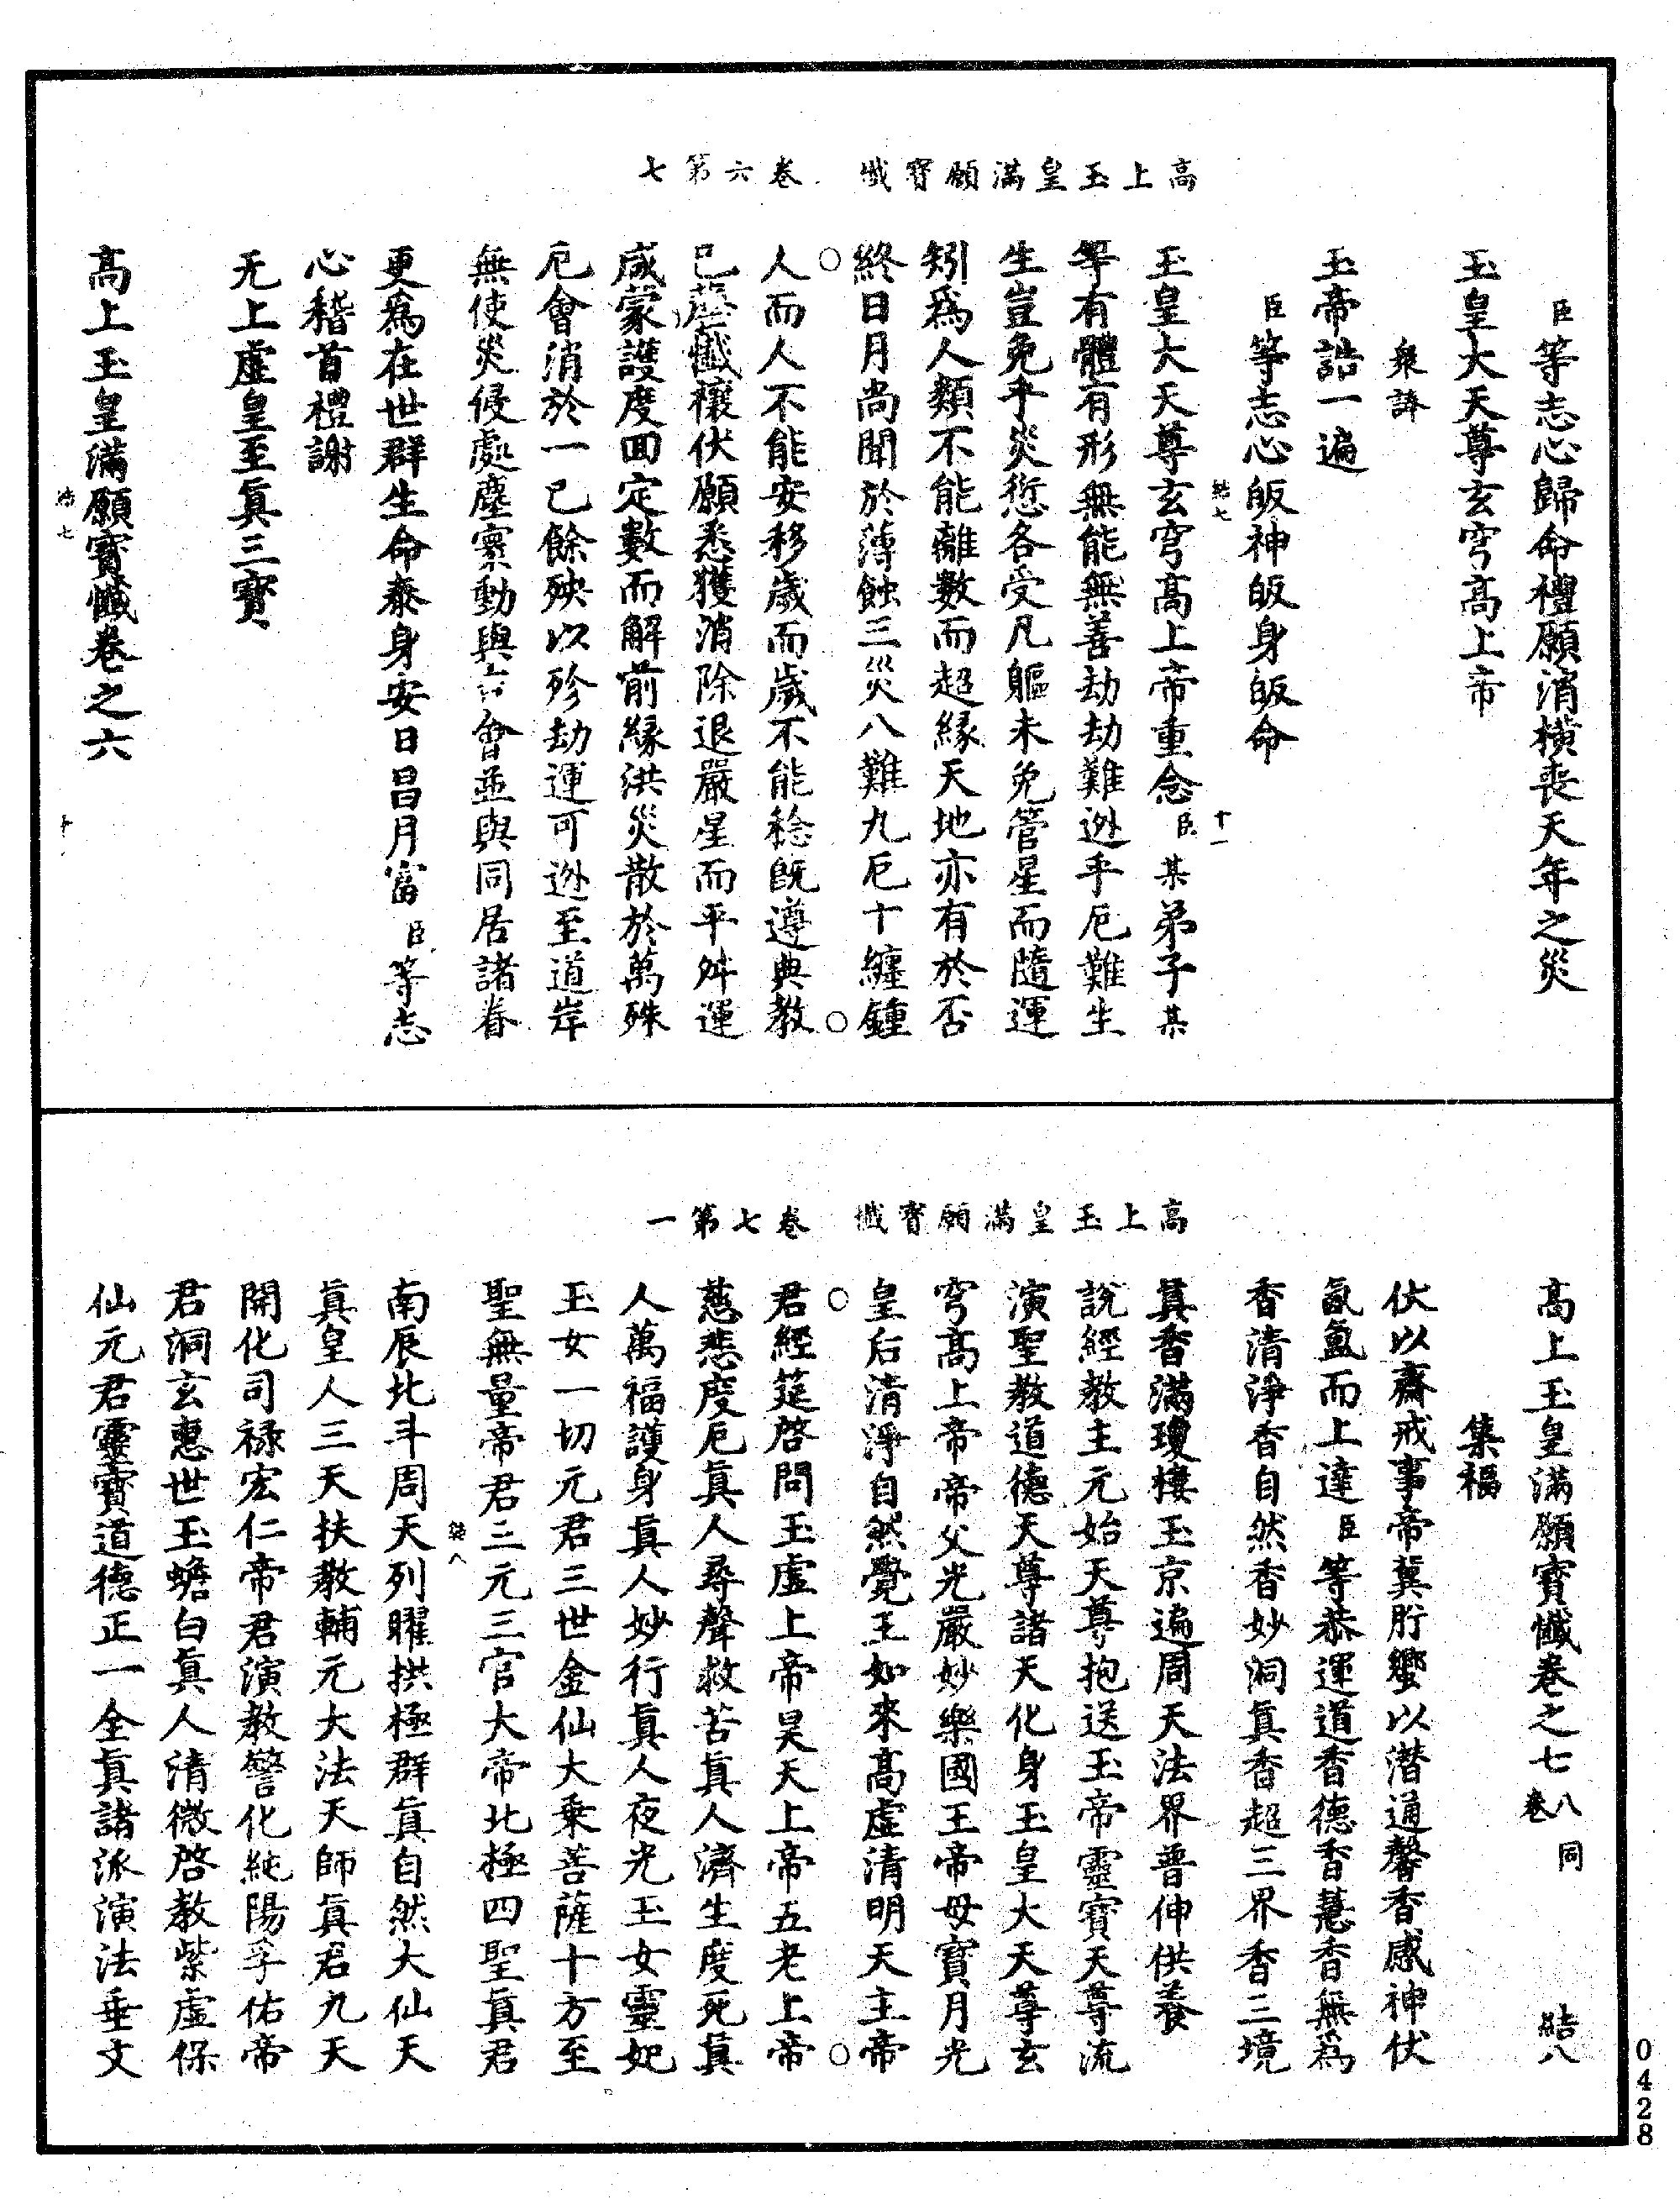 高上玉皇滿願寶懺　卷六第七
臣等志心歸命禮願消橫喪天年之災
玉皇大天尊玄穹高上帝
衆諱
玉帝誥一遍
臣等志心皈神皈身皈命
結七　十一
玉皇大天尊玄穹高上帝重念臣某弟子某
等有體有形無能無善劫劫難逃乎厄難生
生豈免乎災愆各受凡軀未免管星而隨運
矧爲人類不能離數而超緣天地亦有於否
終日月尚聞於薄蝕三災八難九厄十纏鍾
人而人不能安移歲而歲不能稔旣遵典教
已塵懺禳伏願悉獲消除退嚴星而平舛運
咸蒙護度回定數而解前緣洪災散於萬殊
厄會消於一已餘殃以殄劫運可逃至道岸
無使災侵處塵寰動與吉會並與同居諸眷
更爲在世群生命泰身安日昌月富臣等志
心稽首禮謝
无上虛皇至眞三寶
高上玉皇滿願寶懺卷之六
結七　十
高上玉皇滿願寶懺　卷七第一
高上玉皇滿願寶懺卷之七八卷同　結八
集福
伏以齋戒事帝冀肸蠁以潜通馨香感神伏
氤氳而上達臣等恭運道香德香慧香無爲
香清淨香自然香妙洞眞香超三界香三境
眞香滿瓊樓玉京遍周天法界普伸供養
說經教主元始天尊抱送玉帝靈寶天尊流
演聖教道德天尊諸天化身玉皇大天尊玄
穹高上帝帝父光嚴妙樂國王帝母寶月光
皇后清淨自然覺王如來高虛清明天主帝
君經筵啓問玉虛上帝昊天上帝五老上帝
慈悲度厄眞人尋聲救苦眞人濟生度死眞
人萬福護身眞人妙行眞人夜光玉女靈妃
玉女一切元君三世金仙大乘菩薩十方至
聖無量帝君三元三官大帝北極四聖眞君
結八
南辰北斗周天列曜拱極群眞自然大仙天
眞皇人三天扶教輔元大法天師眞君九天
開化司祿宏仁帝君演教警化純陽孚佑帝
君洞玄惠世玉蟾白眞人清微啓教紫虛保
仙元君靈寶道德正一全眞諸派演法垂文
0428